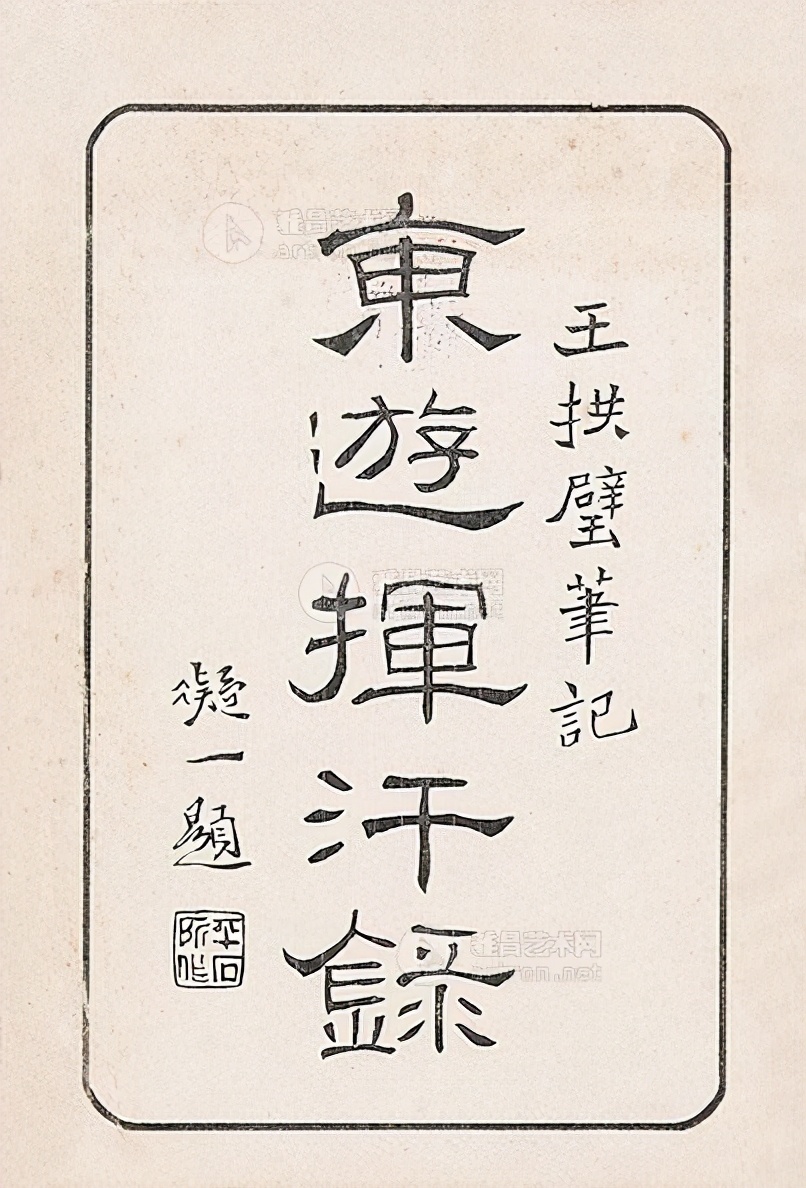 王拱璧筆記
東遊揮汗錄
凝一題
雅昌艺术网
artron.net